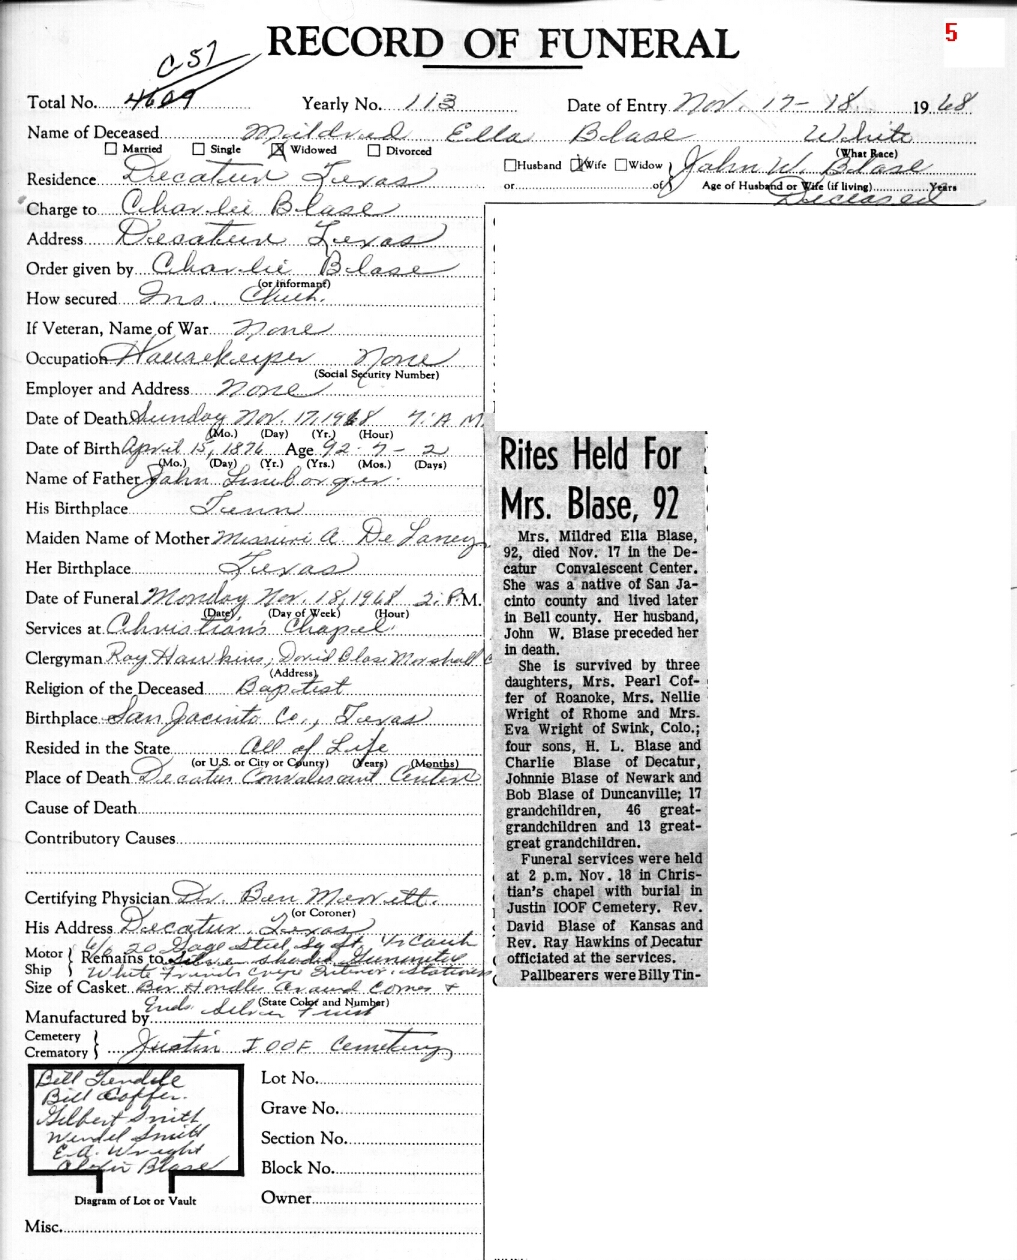 5
C-57
RECORD OF FUNERAL
Total No. 4609 Yearly No. 113 Date of Entry Nov. 17-18 1968
Name of Deceased Mildred Ella Blase White
(What Race)
Married Single Widowed Divorced
Husband Wife Widow John W. Blase
or of Age of Husband or Wife (if living) Years
Deceased
Residence Decatur Texas
Charge to Charlie Blase
Address Decatur Texas
Order given by Charlie Blase
(or informant)
How secured Ins.
If Veteran, Name of War None
Occupation Housekeeper None
(Social Security Number)
Employer and Address None
Date of Death Sunday Nov. 17, 1968 7: A.M.
(Mo.) (Day) (Yr.) (Hour)
Date of Birth April 15, 1876 Age 92-7-2
(Mo.) (Day) (Yr.) (Yrs.) (Mos.) (Days)
Name of Father John
His Birthplace Tenn
Maiden Name of Mother Missouri A. De Laney
Her Birthplace Texas
Date of Funeral Monday Nov. 18, 1968 2: P.M.
(Date) (Day of Week) (Hour)
Services at Christian's Chapel
Clergyman Ray Hawkins, David Blase Marshall
(Address)
Religion of the Deceased Baptist
Birthplace San Jacinto Co., Texas
Resided in the State All of Life
(or U.S. or City or County) (Years) (Months)
Place of Death Decatur Convalescent Center
Cause of Death
Contributory Causes
Certifying Physician Dr. Ben Merritt.
(or Coroner)
His Address Decatur, Texas
6/6 20 Gage Steel Sq
Motor Ship Remains to Silver Shaded
White Crepe Interior. Stationary
Size of Casket Bar Handles Around Corners &
(State Color and Number)
Ends. Silver Finish
Manufactured by
Cemetery
Crematory Justin IOOF Cemetery
Bill
Bill Coffer.
Gilbert Smith
Wendel Smith
E.A. Wright
Blase
Diagram of Lot or Vault
Lot No.
Grave No.
Section No.
Block No.
Owner
Misc.
Rites Held For
Mrs. Blase, 92
Mrs. Mildred Ella Blase,
92, died Nov. 17 in the De-
catur Convalescent Center.
She was a native of San Ja-
cinto county and lived later
in Bell county. Her husband,
John W. Blase preceded her
in death.
She is survived by three
daughters, Mrs. Pearl Cof-
fer of Roanoke, Mrs. Nellie
Wright of Rhome and Mrs.
Eva Wright of Swink, Colo.;
four sons, H. L. Blase and
Charlie Blase of Decatur,
Johnnie Blase of Newark and
Bob Blase of Duncanville; 17
grandchildren, 46 great-
grandchildren and 13 great-
great grandchildren.
Funeral services were held
at 2 p.m. Nov. 18 in Chris-
tian's chapel with burial in
Justin IOOF Cemetery. Rev.
David Blase of Kansas and
Rev. Ray Hawkins of Decatur
officiated at the services.
Pallbearers were Billy Tin-